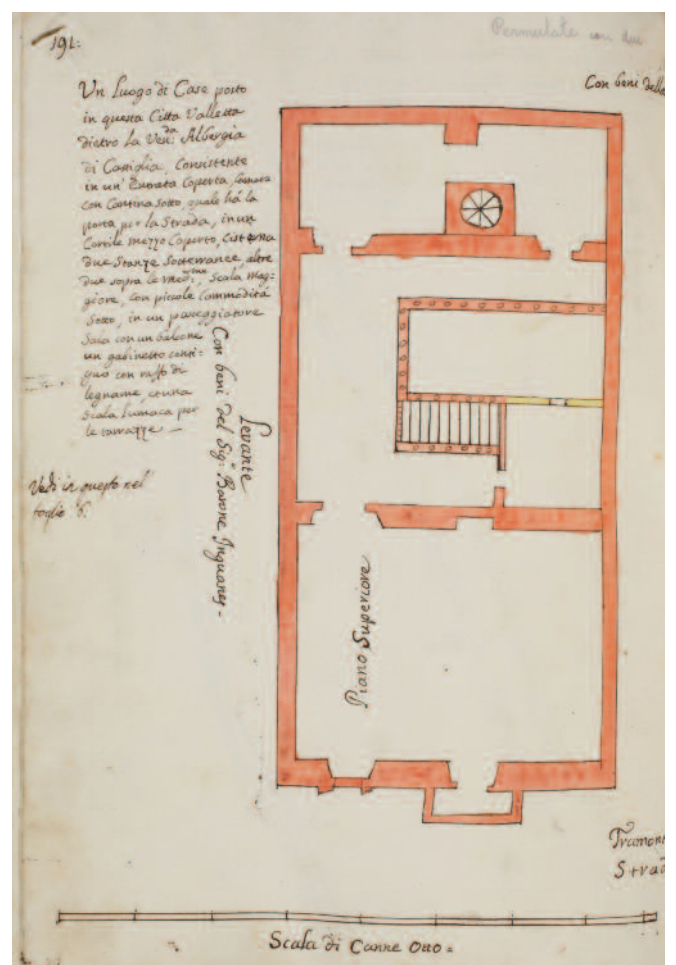 191:
Permutate con due
Con beni della
Un Luogo di Case posto
in questa Citta Valletta
dietro La Ven:da Albergia
di Castiglia, Consistente
in un' Entrata Coperta,
con Cantina Sotto, quale há la
porta per la Strada, in un
Cortile mezzo Coperto, Cisterna
due Stanze Sotterranee, altre
due sopra le med:me, Scala Mag=
giore, con piccole Commóditá
Sotto, in un passeggiatore
Sala con un balcone
un gabinetto conti=
guo con di
legname, con una
Scala Lumaca per
le tarrazze —
Vedi in questo nel
foglio 6.
Levante
Con beni del Sig:r Barone Inguanes -
Piano Superiore
Tramon
Strad
Scala di Canne Otto =